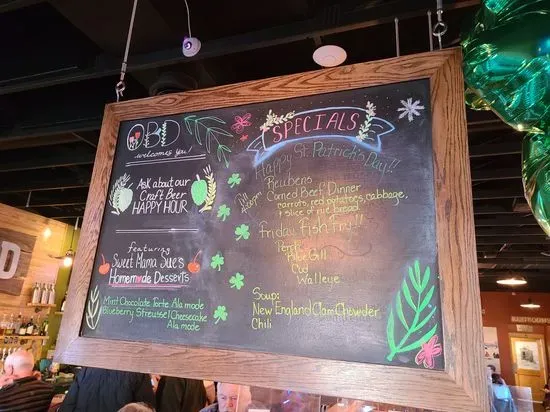 OBD
welcomes you!
Ask about our
Craft Beer
HAPPY HOUR
featuring
Sweet Mama Sue's
Homemade Desserts
Mint Chocolate Torte Ala mode
Blueberry Streusel Cheesecake
Ala mode
SPECIALS
Happy St. Patrick's Day!!
Reubens
Corned Beef Dinner
carrots, red potatoes, cabbage,
& slice of rye bread.
Friday Fish Fry!!
Perch
Blue Gill
Cod
Walleye
Soup:
New England Clam Chowder
Chili
D
RESTROOMS